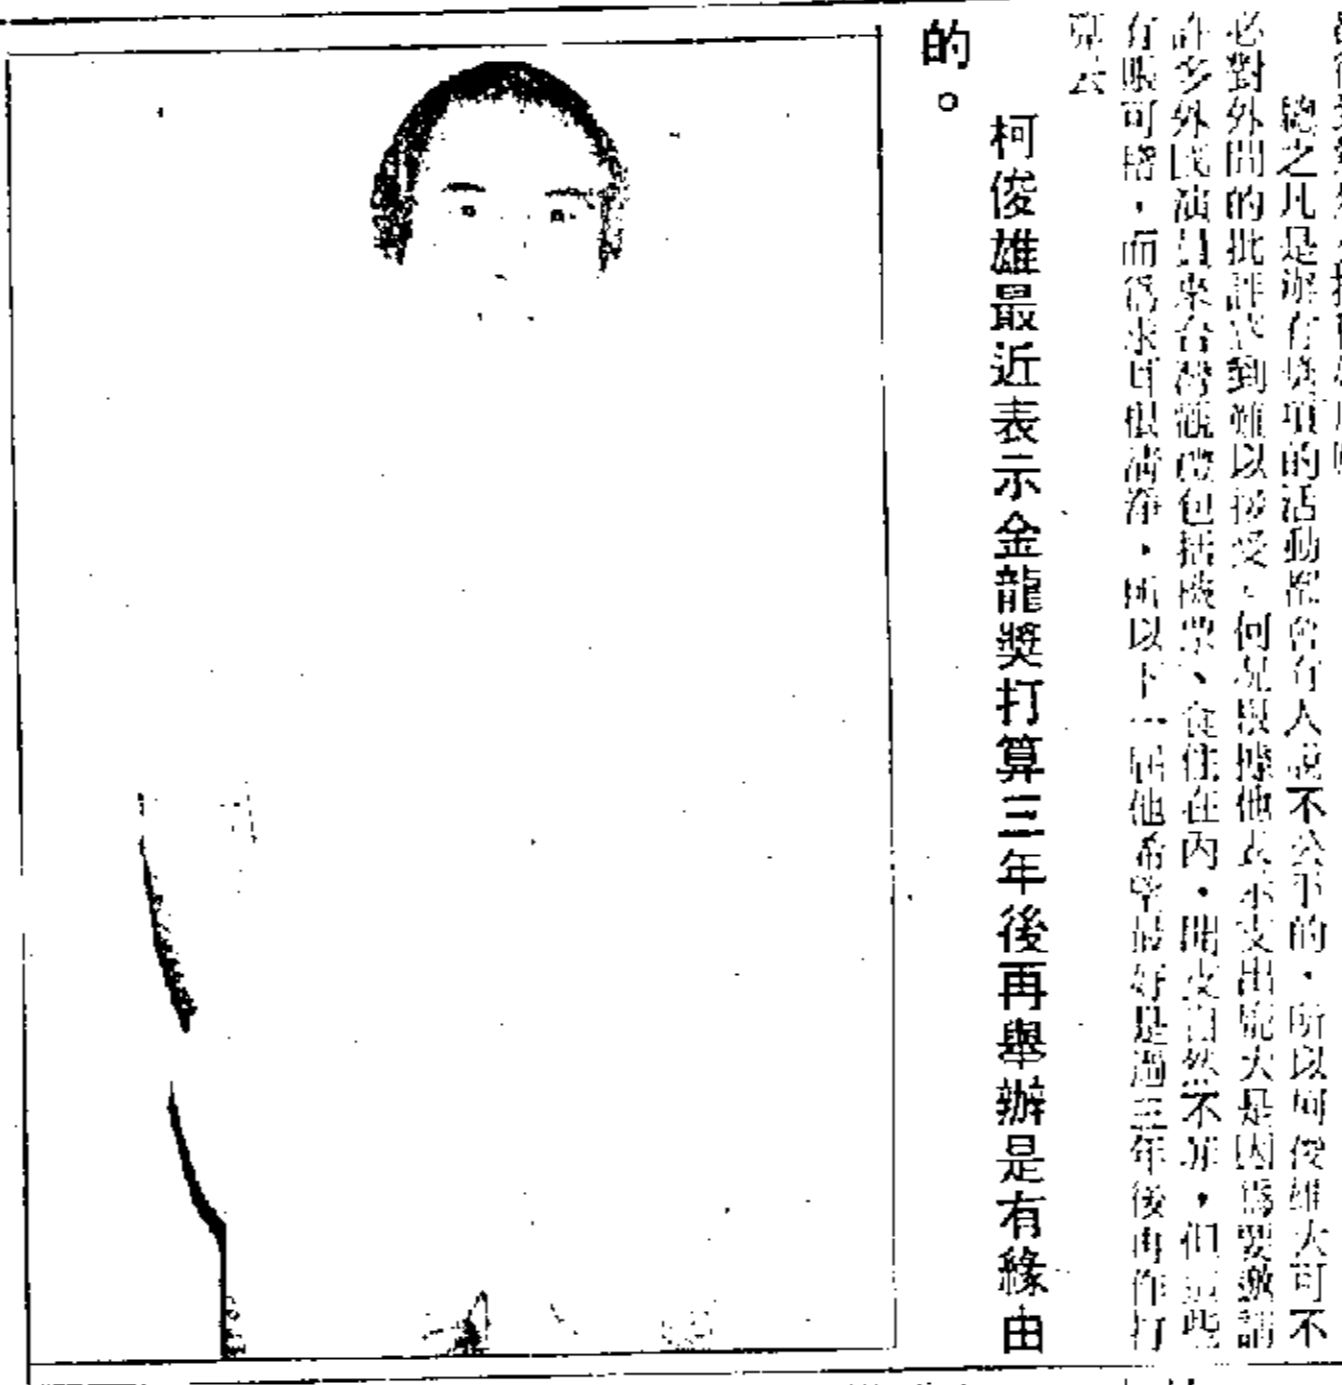 總之凡是辦有獎項的活動都會有人說不公平的，所以柯俊雄大可不
必對外間的批評感到難以接受。何況根據他表示支出龐大是因為要邀請
許多外國演員來台灣觀禮包括機票、食住在內，開支自然不菲，但這些
有賬可稽，而為求耳根清淨，所以下一屆他希望最好是過三年後再作打
算云
柯俊雄最近表示金龍獎打算三年後再舉辦是有緣由
的。